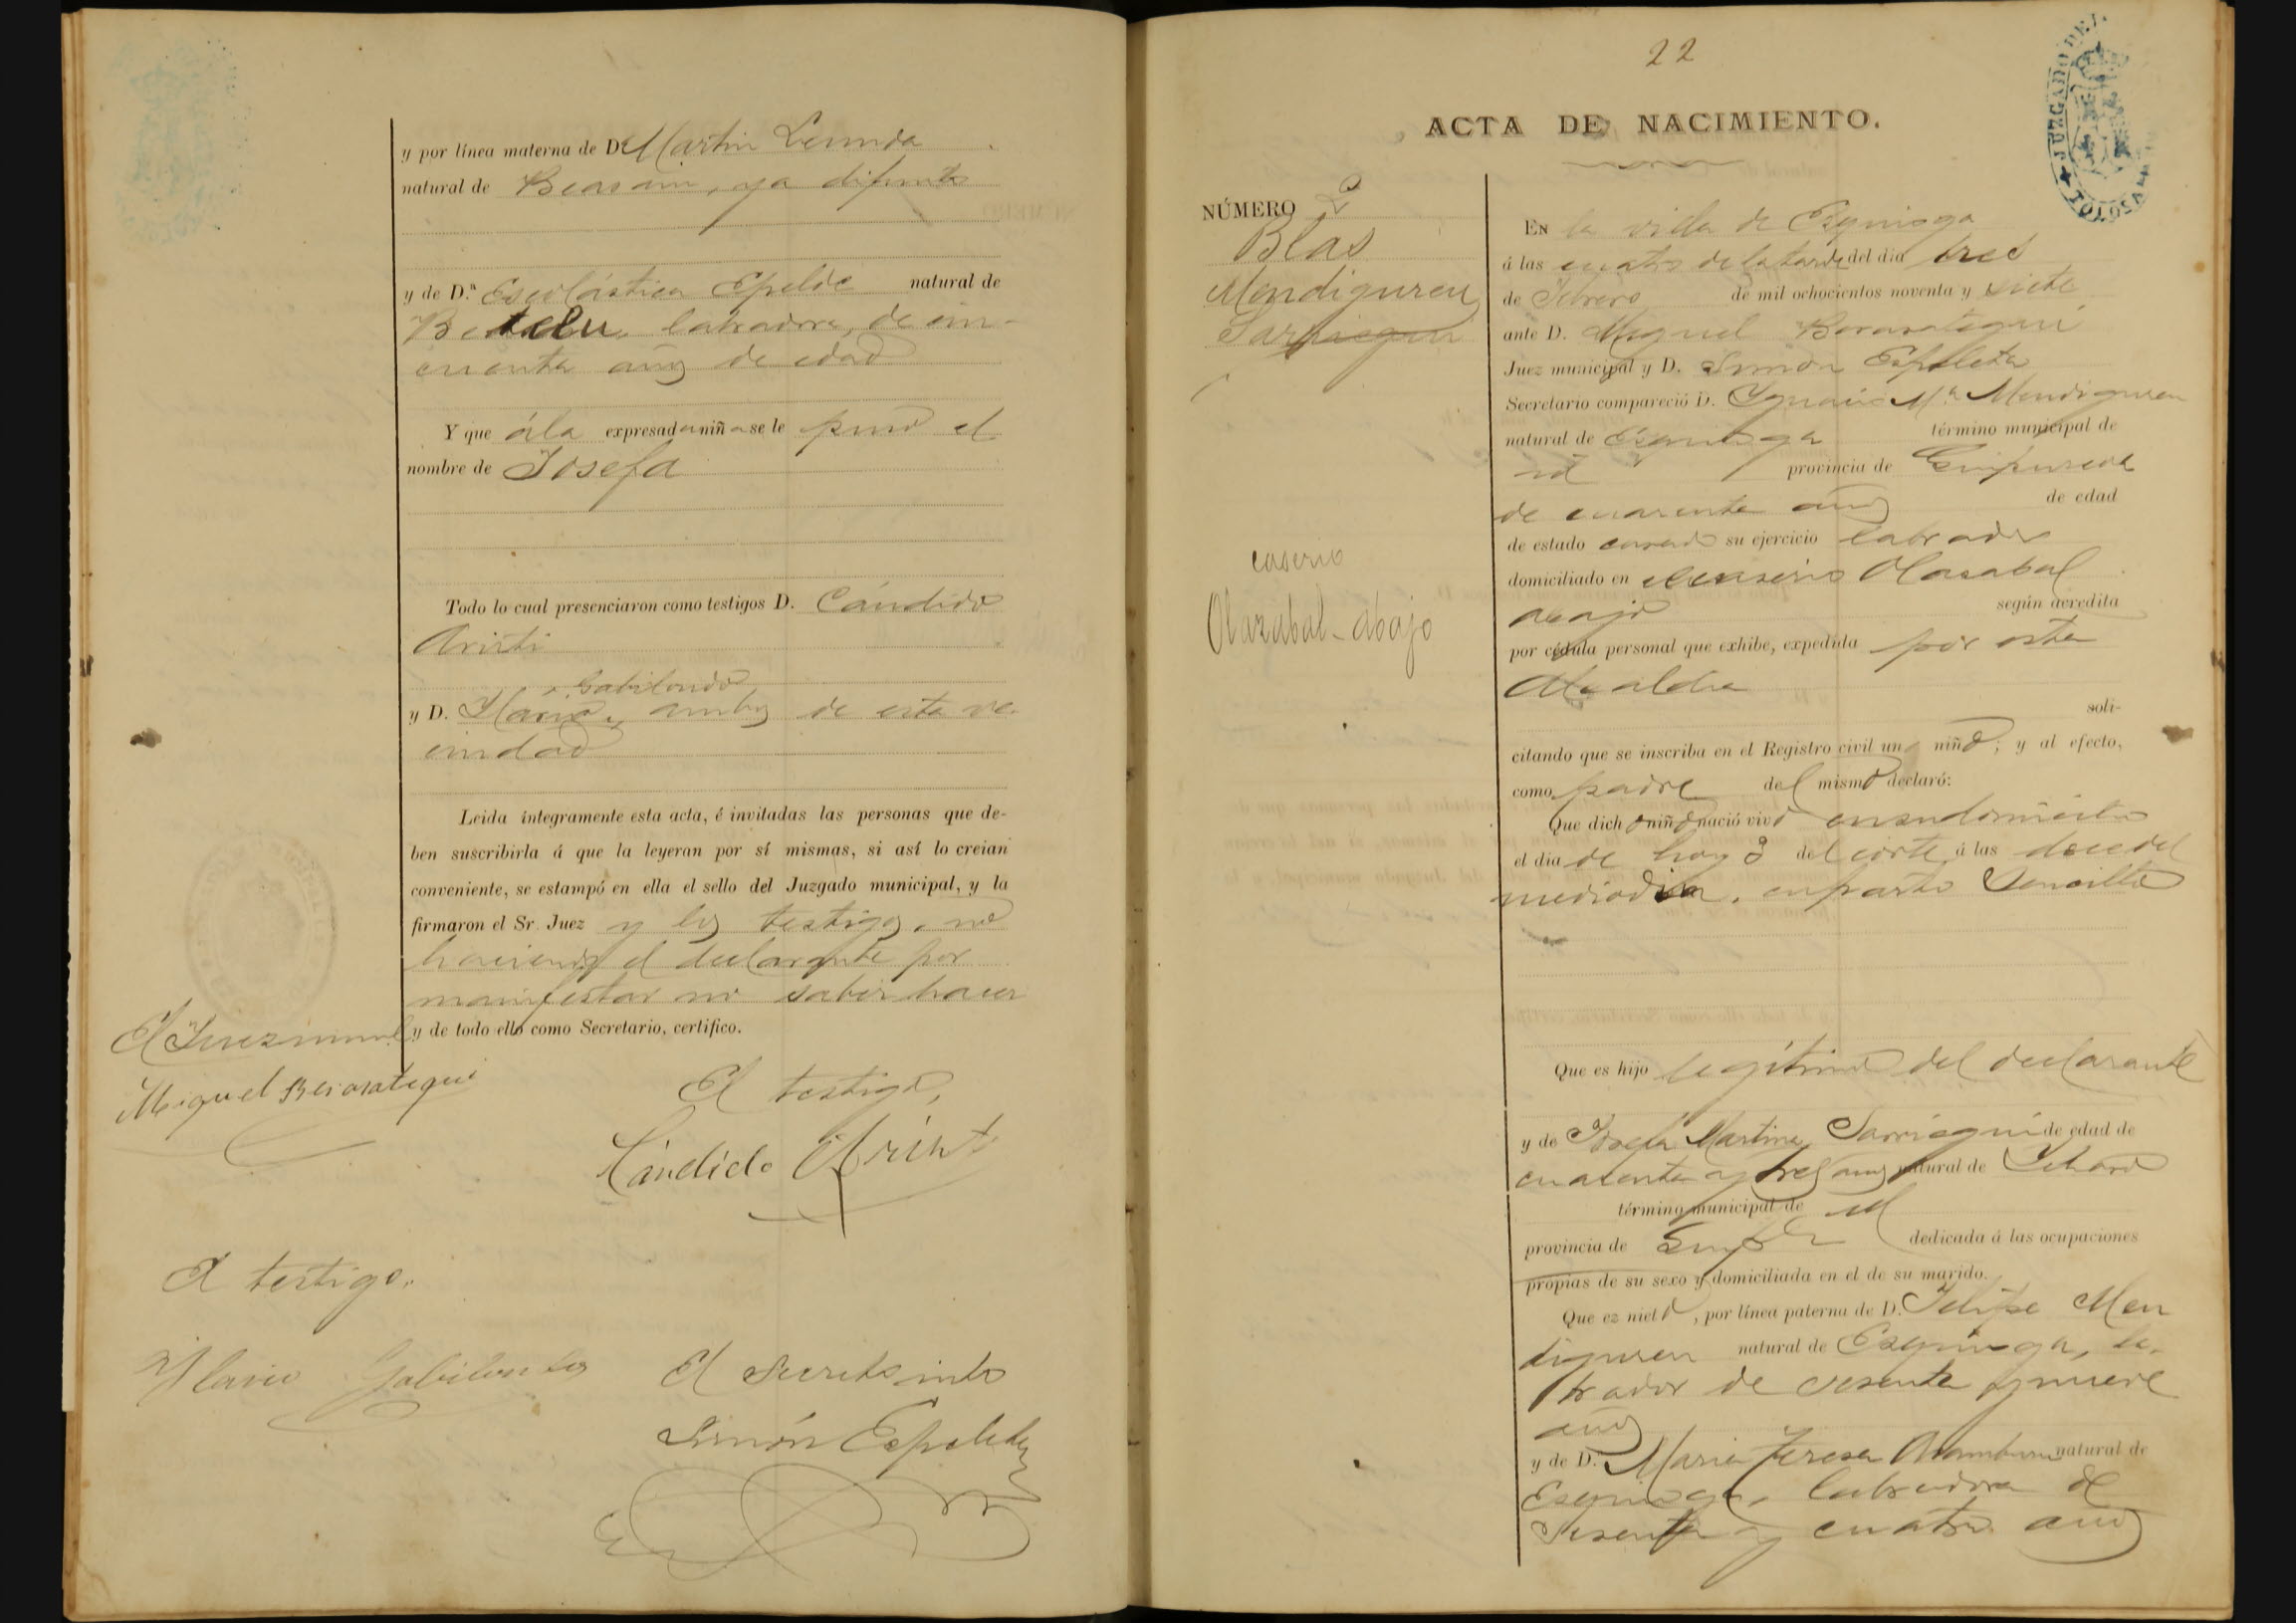 y por línea materna de D. Martin Lecunda
natural de Beasain, ya difunto
y de D.ª Escolástica Epelde natural de
Betelu, labradora, de cin-
cuenta años de edad
Y que á la expresada niña se le puso el
nombre de Josefa
Todo lo cual presenciaron como testigos D. Cándido
Aristi
Gabilondo
y D. Ylario, ambos de esta ve-
cindad
Leida íntegramente esta acta, é invitadas las personas que de-
ben suscribirla á que la leyeran por sí mismas, si así lo creian
conveniente, se estampó en ella el sello del Juzgado municipal, y la
firmaron el Sr. Juez y los testigos, no
haciendo el declarante por
manifestar no saber hacer
y de todo ello como Secretario, certifico.
El Juez munl
Miguel Berasategui
El testigo,
Cándido Aristi
El testigo.
Ylario Gabilondo
El Secretario
Simón Espeleta
22
ACTA DE NACIMIENTO.
JUZGADO
TOLOSA
NÚMERO 2
Blas
Mendiguren
Sarriegui
caserio
Olazabal-abajo
En la villa de Ezquioga
á las cuatro de la tarde del dia tres
de Febrero de mil ochocientos noventa y siete
ante D. Miguel Berasategui
Juez municipal y D. Simón Espeleta
Secretario compareció D. Ygnacio Mª Mendiguren
natural de Ezquioga término municipal de
id provincia de Guipuzcoa
de cuarenta años de edad
de estado casado su ejercicio labrador
domiciliado en el caserio Olazabal
abajo según acredita
por cédula personal que exhibe, expedida por esta
Alcaldia
soli-
citando que se inscriba en el Registro civil un niño, y al efecto,
como padre del mismo declaró:
Que dicho niño nació vivo en su domicilio
el dia de hoy 3 del corte á las doce del
mediodia, en parto sencillo
Que es hijo legítimo del declarante
y de Josefa Martina Sarriegui de edad de
cuarenta y tres años natural de Ychaso
término municipal de id
provincia de Guipca dedicada á las ocupaciones
propias de su sexo y domiciliada en el de su marido.
Que ez nieto, por línea paterna de D. Felipe Men
diguren natural de Ezquioga, la-
brador de sesenta y nueve
años
y de D.ª Maria Teresa Aramburu natural de
Ezquioga, labradora de
sesenta y cuatro años